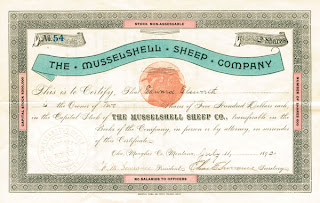 STOCK NON-ASSESSABLE
No. 54
2 Shares
THE MUSSELSHELL SHEEP COMPANY
This is to Certify, That Edward
is the Owner of Two Shares of Five Hundred Dollars each,
in the Capital Stock of THE MUSSELSHELL SHEEP CO., transferable on the
Books of the Company, in person or by attorney, on surrender
of this Certificate.
CAPITAL STOCK
NUMBER OF SHARES
Montana July 11, 1892
President Secretary
NO SALARIES TO OFFICERS